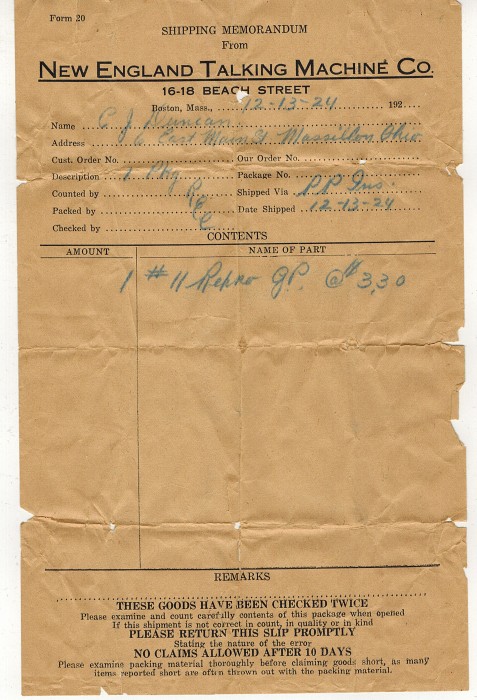 Form 20
SHIPPING MEMORANDUM
From
NEW ENGLAND TALKING MACHINE CO.
16-18 BEACH STREET
Boston, Mass., 12-13-24 192....
Name C. J. Duncan
Address 16 East Main St Massillon Ohio
Cust. Order No. Our Order No.
Description 1 Pkg Package No.
Counted by R Shipped Via P.P. Ins.
Packed by B Date Shipped 12-13-24
Checked by C
CONTENTS
AMOUNT NAME OF PART
1 #11 Repro G.P. @ $3.30
REMARKS
THESE GOODS HAVE BEEN CHECKED TWICE
Please examine and count carefully contents of this package when opened
If this shipment is not correct in count, in quality or in kind
PLEASE RETURN THIS SLIP PROMPTLY
Stating the nature of the error
NO CLAIMS ALLOWED AFTER 10 DAYS
Please examine packing material thoroughly before claiming goods short, as many
items reported short are often thrown out with the packing material.